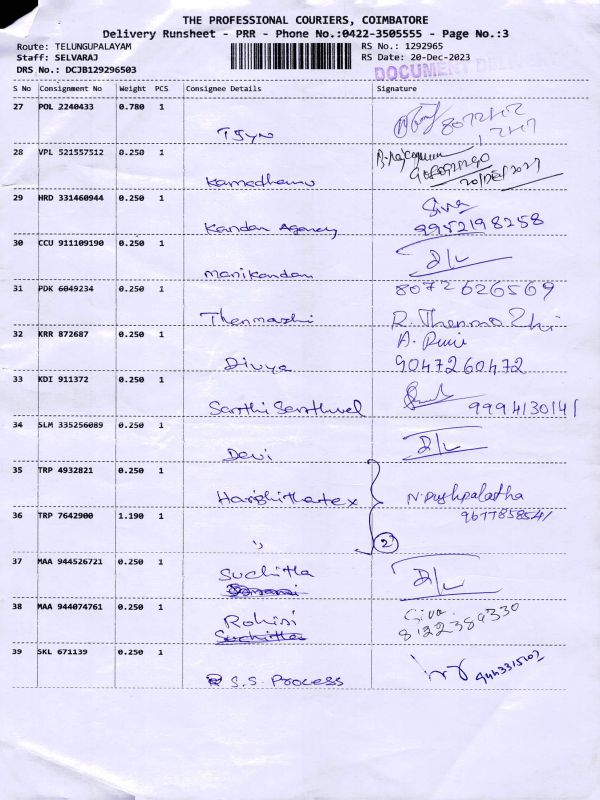 THE PROFESSIONAL COURIERS, COIMBATORE
Delivery Runsheet - PRR - Phone No.:0422-3505555 - Page No.:3
Route: TELUNGUPALAYAM
RS No.: 1292965
Staff: SELVARAJ
RS Date: 20-Dec-2023
DRS No.: DCJB129296503
DOCUMENT
S No Consignment No Weight PCS Consignee Details Signature
27 POL 2240433 0.780 1
28 VPL 521557512 0.250 1
20/Dec/2023
Kamadhenu
29 HRD 331460944 0.250 1
Siva
Kandan Agency
9952198258
30 CCU 911109190 0.250 1
D/L
Manikandan
31 PDK 6049234 0.250 1
8072626569
Thenmozhi
R. Thenmozhi
32 KRR 872687 0.250 1
Divya
9047260472
33 KDI 911372 0.250 1
Sarthi Sarathvel
9994130141
34 SLM 335256089 0.250 1
D/L
Devi
35 TRP 4932821 0.250 1
Harshithatex
N. Pushpalatha
36 TRP 7642900 1.190 1
9677858541
,,
2
37 MAA 944526721 0.250 1
Suchitla
D/L
38 MAA 944074761 0.250 1
Siva
Rohini
8122389330
Suchitla
39 SKL 671139 0.250 1
9443315202
S.S. Process